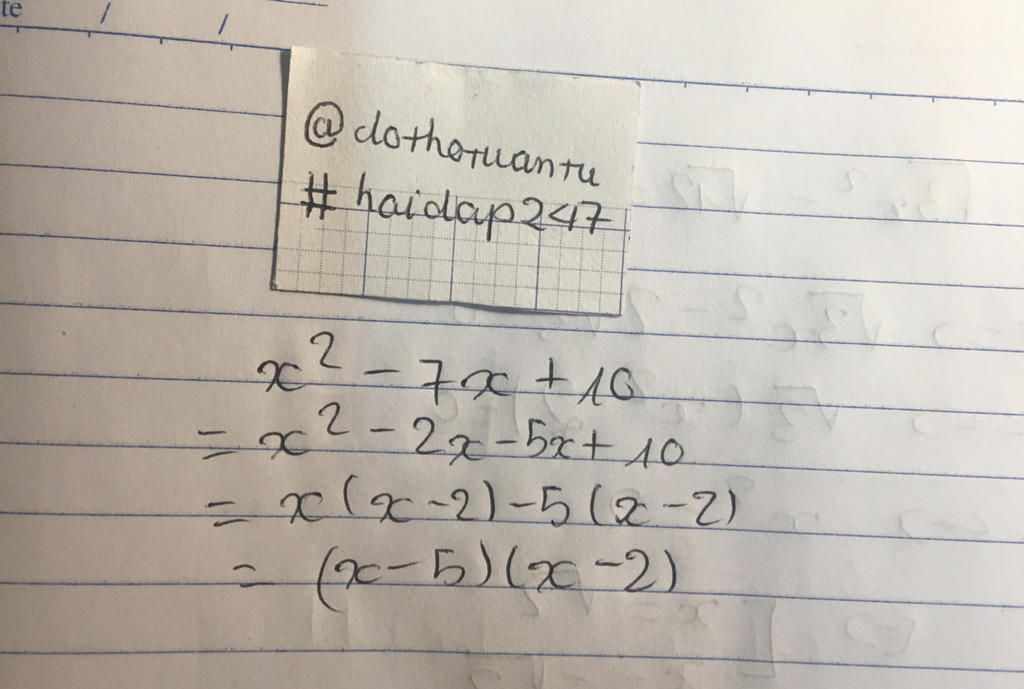 te / /
@dothotuantu
# haidap247
x² - 7x + 10
= x² - 2x - 5x + 10
= x(x-2) - 5(x-2)
= (x-5)(x-2)